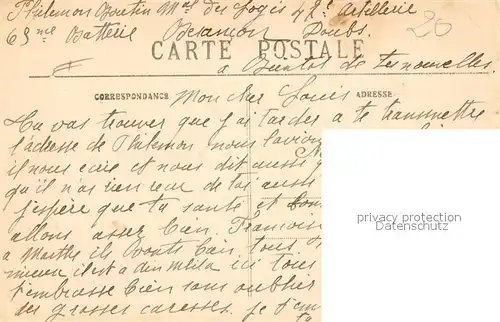 Philemon Boutin Mal des Logis 47e Artillerie
63me Batterie Besançon Doubs.
20
CARTE POSTALE
a Bientot de tes nouvelles
CORRESPONDANCE Mon cher Louis ADRESSE
Tu vas trouver que j'ai tarder a te transmettre
l'adresse de Philemon nous l'avion
il nous ecrie et nous dit aussi
qu'il n'as rien recu de toi aussi
j'espère que ta santé et bon
allons assez bien. Francoise
a Marthe ils vont bien. tous
mieux il est a ici tous
t'embrasse bien sans oublier
des grosses caresses. je t'em
privacy protection
Datenschutz